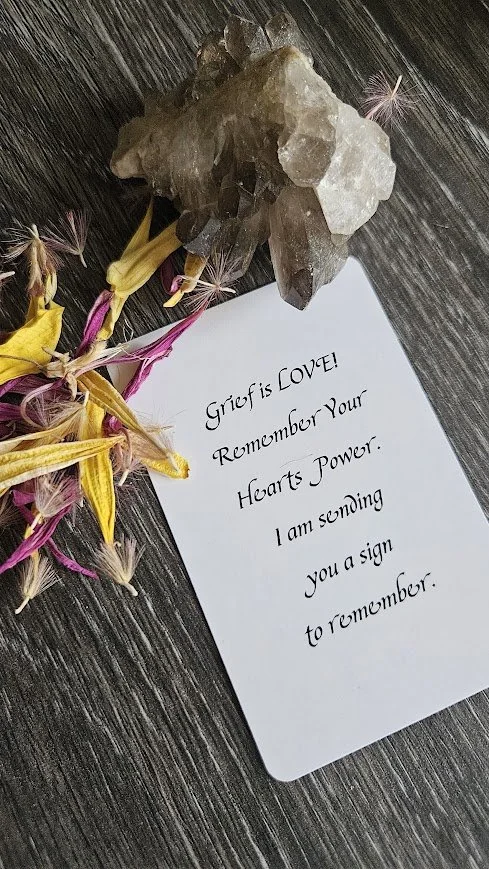 Grief is LOVE!
Remember Your
Hearts Power.
I am sending
you a sign
to remember.